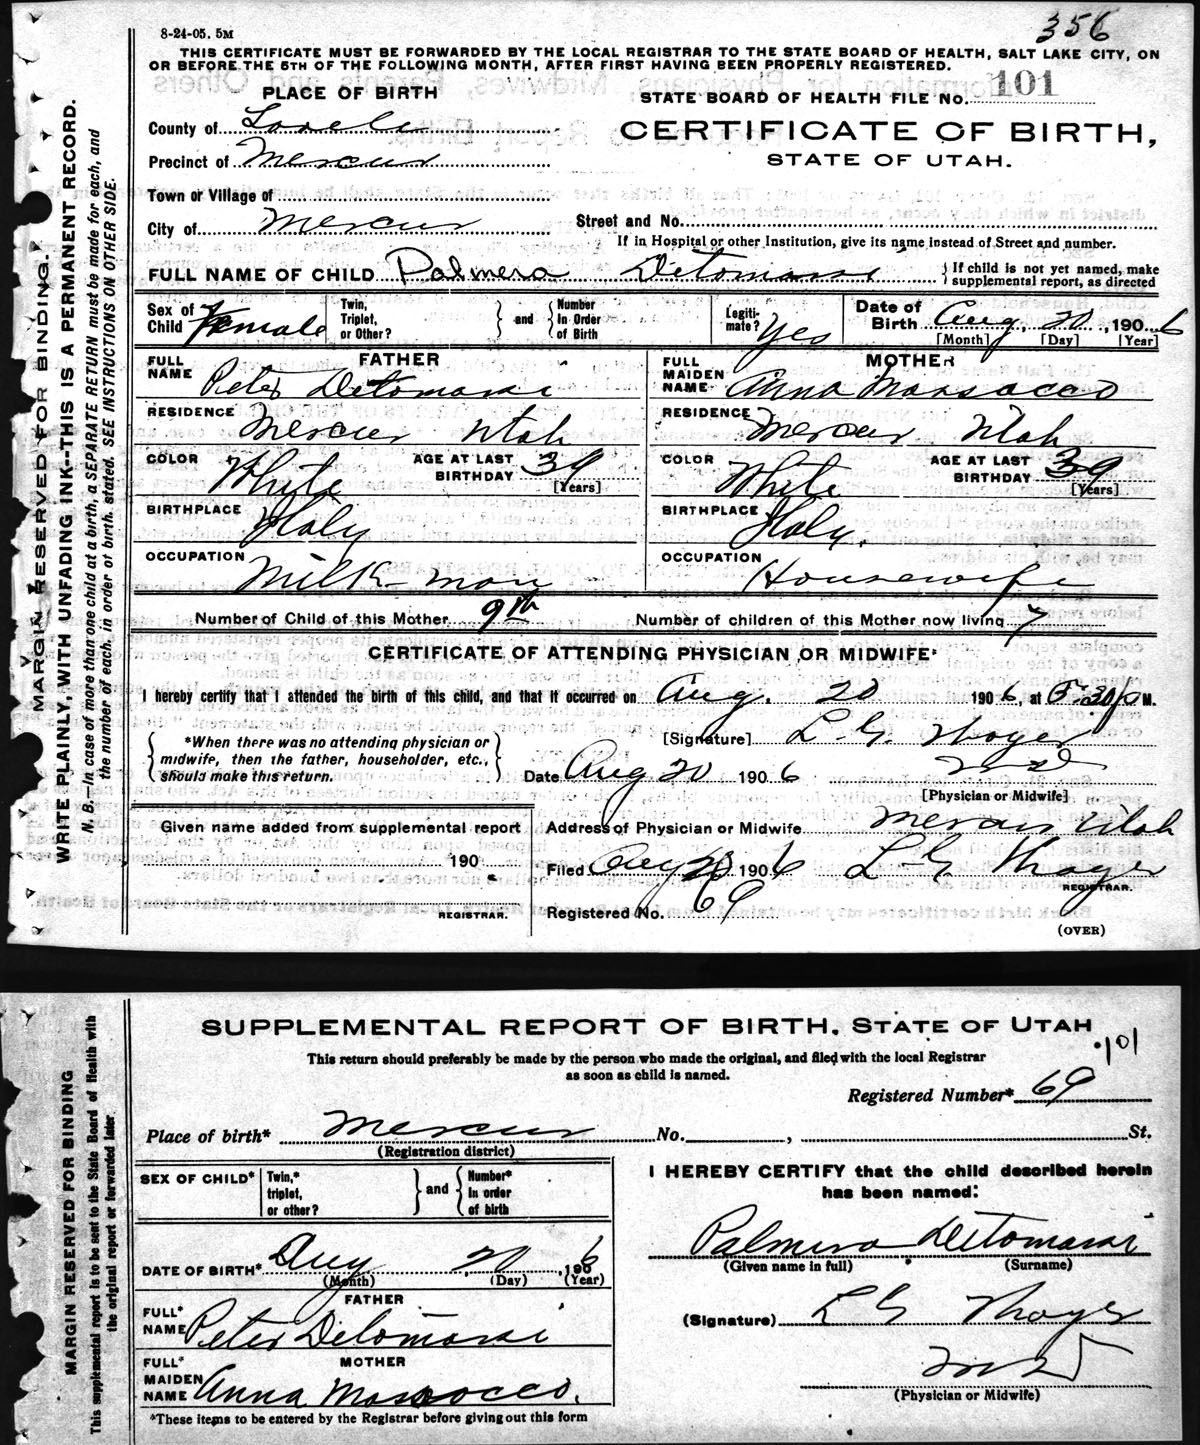 8-24-05. 5M
356
THIS CERTIFICATE MUST BE FORWARDED BY THE LOCAL REGISTRAR TO THE STATE BOARD OF HEALTH, SALT LAKE CITY, ON
OR BEFORE THE 5TH OF THE FOLLOWING MONTH, AFTER FIRST HAVING BEEN PROPERLY REGISTERED.
PLACE OF BIRTH
STATE BOARD OF HEALTH FILE No. 101
County of
CERTIFICATE OF BIRTH,
Precinct of Mercur
STATE OF UTAH.
Town or Village of
City of Mercur
Street and No.
If in Hospital or other Institution, give its name instead of Street and number.
FULL NAME OF CHILD Palmera Detomasi
If child is not yet named, make supplemental report, as directed
Sex of Child Female
Twin, Triplet, or Other?
and
Number In Order of Birth
Legitimate? Yes
Date of Birth Aug. 20, 1906
[Month] [Day] [Year]
FATHER
FULL NAME Peter Detomasi
RESIDENCE Mercur Utah
COLOR White
AGE AT LAST BIRTHDAY 39
[Years]
BIRTHPLACE Italy
OCCUPATION Milk-man
MOTHER
FULL MAIDEN NAME Anna Massocco
RESIDENCE Mercur Utah
COLOR White
AGE AT LAST BIRTHDAY 39
[Years]
BIRTHPLACE Italy.
OCCUPATION Housewife
Number of Child of this Mother 9th
Number of children of this Mother now living 7
CERTIFICATE OF ATTENDING PHYSICIAN OR MIDWIFE*
I hereby certify that I attended the birth of this child, and that it occurred on Aug. 20 1906, at 5:30 P M.
*When there was no attending physician or
midwife, then the father, householder, etc.,
should make this return.
[Signature] L. G. Thayer
Date Aug 20 1906
MD
[Physician or Midwife]
Given name added from supplemental report
190
REGISTRAR.
Address of Physician or Midwife Mercur Utah
Filed Aug 1906 L G Thayer
REGISTRAR.
Registered No. 69
(OVER)
MARGIN RESERVED FOR BINDING.
WRITE PLAINLY, WITH UNFADING INK--THIS IS A PERMANENT RECORD.
N. B.—In case of more than one child at a birth, a SEPARATE RETURN must be made for each, and
the number of each, in order of birth, stated. SEE INSTRUCTIONS ON OTHER SIDE.
SUPPLEMENTAL REPORT OF BIRTH, STATE OF UTAH
101
This return should preferably be made by the person who made the original, and filed with the local Registrar
as soon as child is named.
Registered Number* 69
Place of birth* Mercur No. , St.
(Registration district)
SEX OF CHILD*
Twin,* triplet, or other?
and
Number* In order of birth
DATE OF BIRTH* Aug 20, 1906
(Month) (Day) (Year)
FATHER
FULL* NAME Peter Detomasi
MOTHER
FULL* MAIDEN NAME Anna Massocco.
*These items to be entered by the Registrar before giving out this form
I HEREBY CERTIFY that the child described herein
has been named:
Palmera Detomasi
(Given name in full) (Surname)
(Signature) L G Thayer
MD
(Physician or Midwife)
MARGIN RESERVED FOR BINDING
This supplemental report is to be sent to the State Board of Health with
the original report or forwarded later